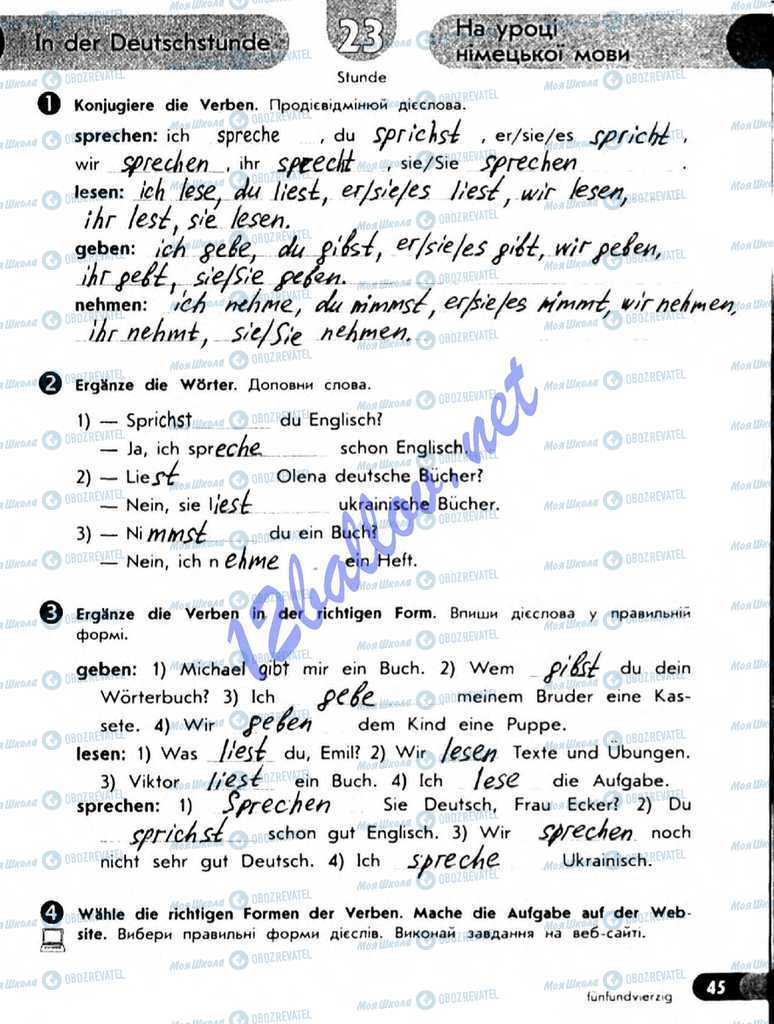 In der Deutschstunde
23
На уроці
німецької мови
Stunde
1 Konjugiere die Verben. Продієвідмінюй дієслова.
sprechen: ich spreche , du sprichst , er/sie/es spricht ,
wir sprechen , ihr sprecht , sie/Sie sprechen .
lesen: ich lese, du liest, er/sie/es liest, wir lesen,
ihr lest, sie lesen.
geben: ich gebe, du gibst, er/sie/es gibt, wir geben,
ihr gebt, sie/Sie geben.
nehmen: ich nehme, du nimmst, er/sie/es nimmt, wir nehmen,
ihr nehmt, sie/Sie nehmen.
2 Ergänze die Wörter. Доповни слова.
1) — Sprichst du Englisch?
— Ja, ich spreche schon Englisch.
2) — Liest Olena deutsche Bücher?
— Nein, sie liest ukrainische Bücher.
3) — Nimmst du ein Buch?
— Nein, ich nehme ein Heft.
3 Ergänze die Verben in der richtigen Form. Впиши дієслова у правильній
формі.
geben: 1) Michael gibt mir ein Buch. 2) Wem gibst du dein
Wörterbuch? 3) Ich gebe meinem Bruder eine Kas-
sete. 4) Wir geben dem Kind eine Puppe.
lesen: 1) Was liest du, Emil? 2) Wir lesen Texte und Übungen.
3) Viktor liest ein Buch. 4) Ich lese die Aufgabe.
sprechen: 1) Sprechen Sie Deutsch, Frau Ecker? 2) Du
sprichst schon gut Englisch. 3) Wir sprechen noch
nicht sehr gut Deutsch. 4) Ich spreche Ukrainisch.
4 Wähle die richtigen Formen der Verben. Mache die Aufgabe auf der Web-
site. Вибери правильні форми дієслів. Виконай завдання на веб-сайті.
fünfundvierzig
45
12ballov.net
Моя Школа OBOZREVATEL